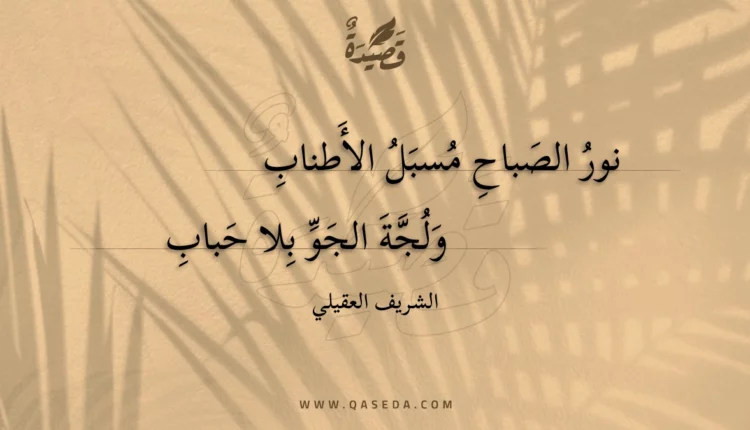 قَصِيْدَةٌ
نورُ الصَباحِ مُسبَلُ الأَطنابِ
وَلُجَّةَ الجَوِّ بِلا حَبابِ
الشريف العقيلي
WWW.QASEDA.COM